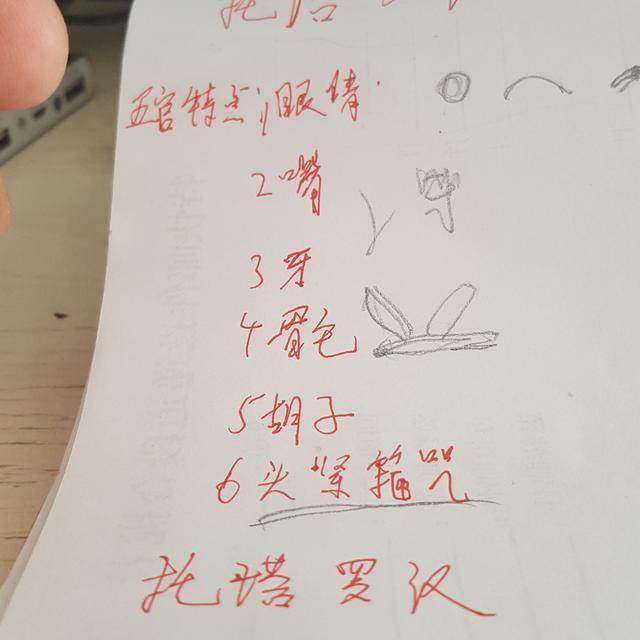 五官特点1眼睛.
2嘴
3牙
4眉毛
5胡子
6头紧箍咒
托塔罗汉